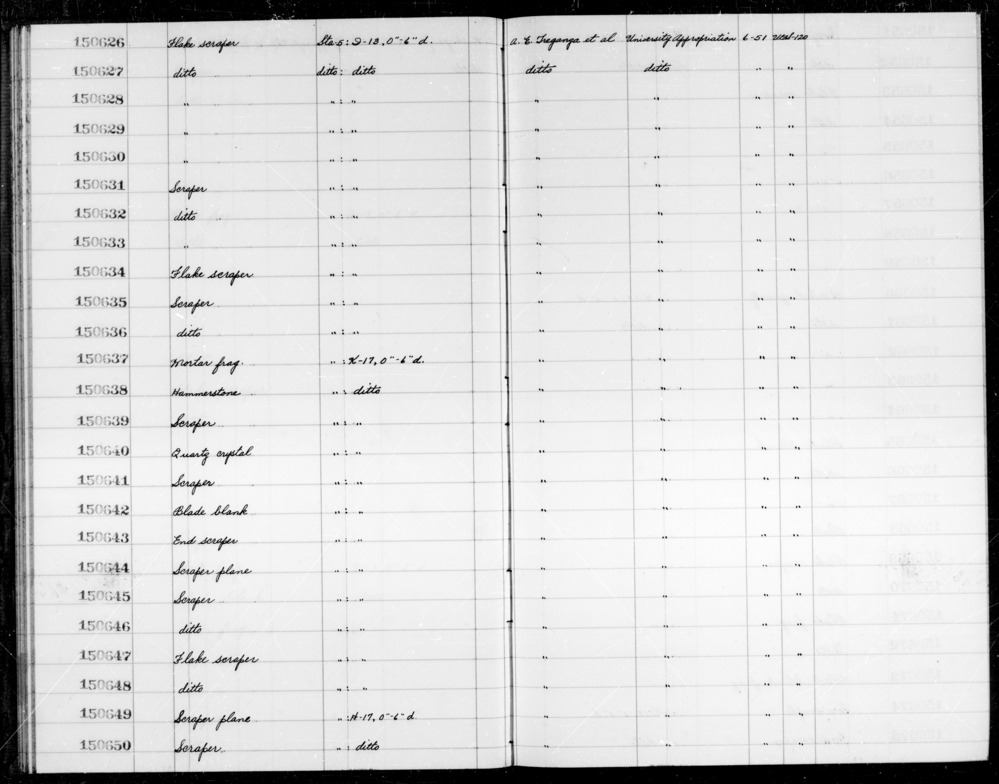 150626 Flake scraper Sta-5: I-18, 0"-6" d. A. E. Treganga et al University Appropriation 6-51 UCAS-120
150627 ditto ditto: ditto ditto ditto " "
150628 " " : " " " " "
150629 " " : " " " " "
150630 " " : " " " " "
150631 Scraper " : " " " " "
150632 ditto " : " " " " "
150633 " " : " " " " "
150634 Flake scraper " : " " " " "
150635 Scraper " : " " " " "
150636 ditto " : " " " " "
150637 Mortar frag. " : K-17, 0"-6" d. " " " "
150638 Hammerstone " : ditto " " " "
150639 Scraper " : " " " " "
150640 Quartz crystal " : " " " " "
150641 Scraper " : " " " " "
150642 Blade blank " : " " " " "
150643 End scraper " : " " " " "
150644 Scraper plane " : " " " " "
150645 Scraper " : " " " " "
150646 ditto " : " " " " "
150647 Flake scraper " : " " " " "
150648 ditto " : " " " " "
150649 Scraper plane " : H-17, 0"-6" d. " " " "
150650 Scraper " : ditto " " " "